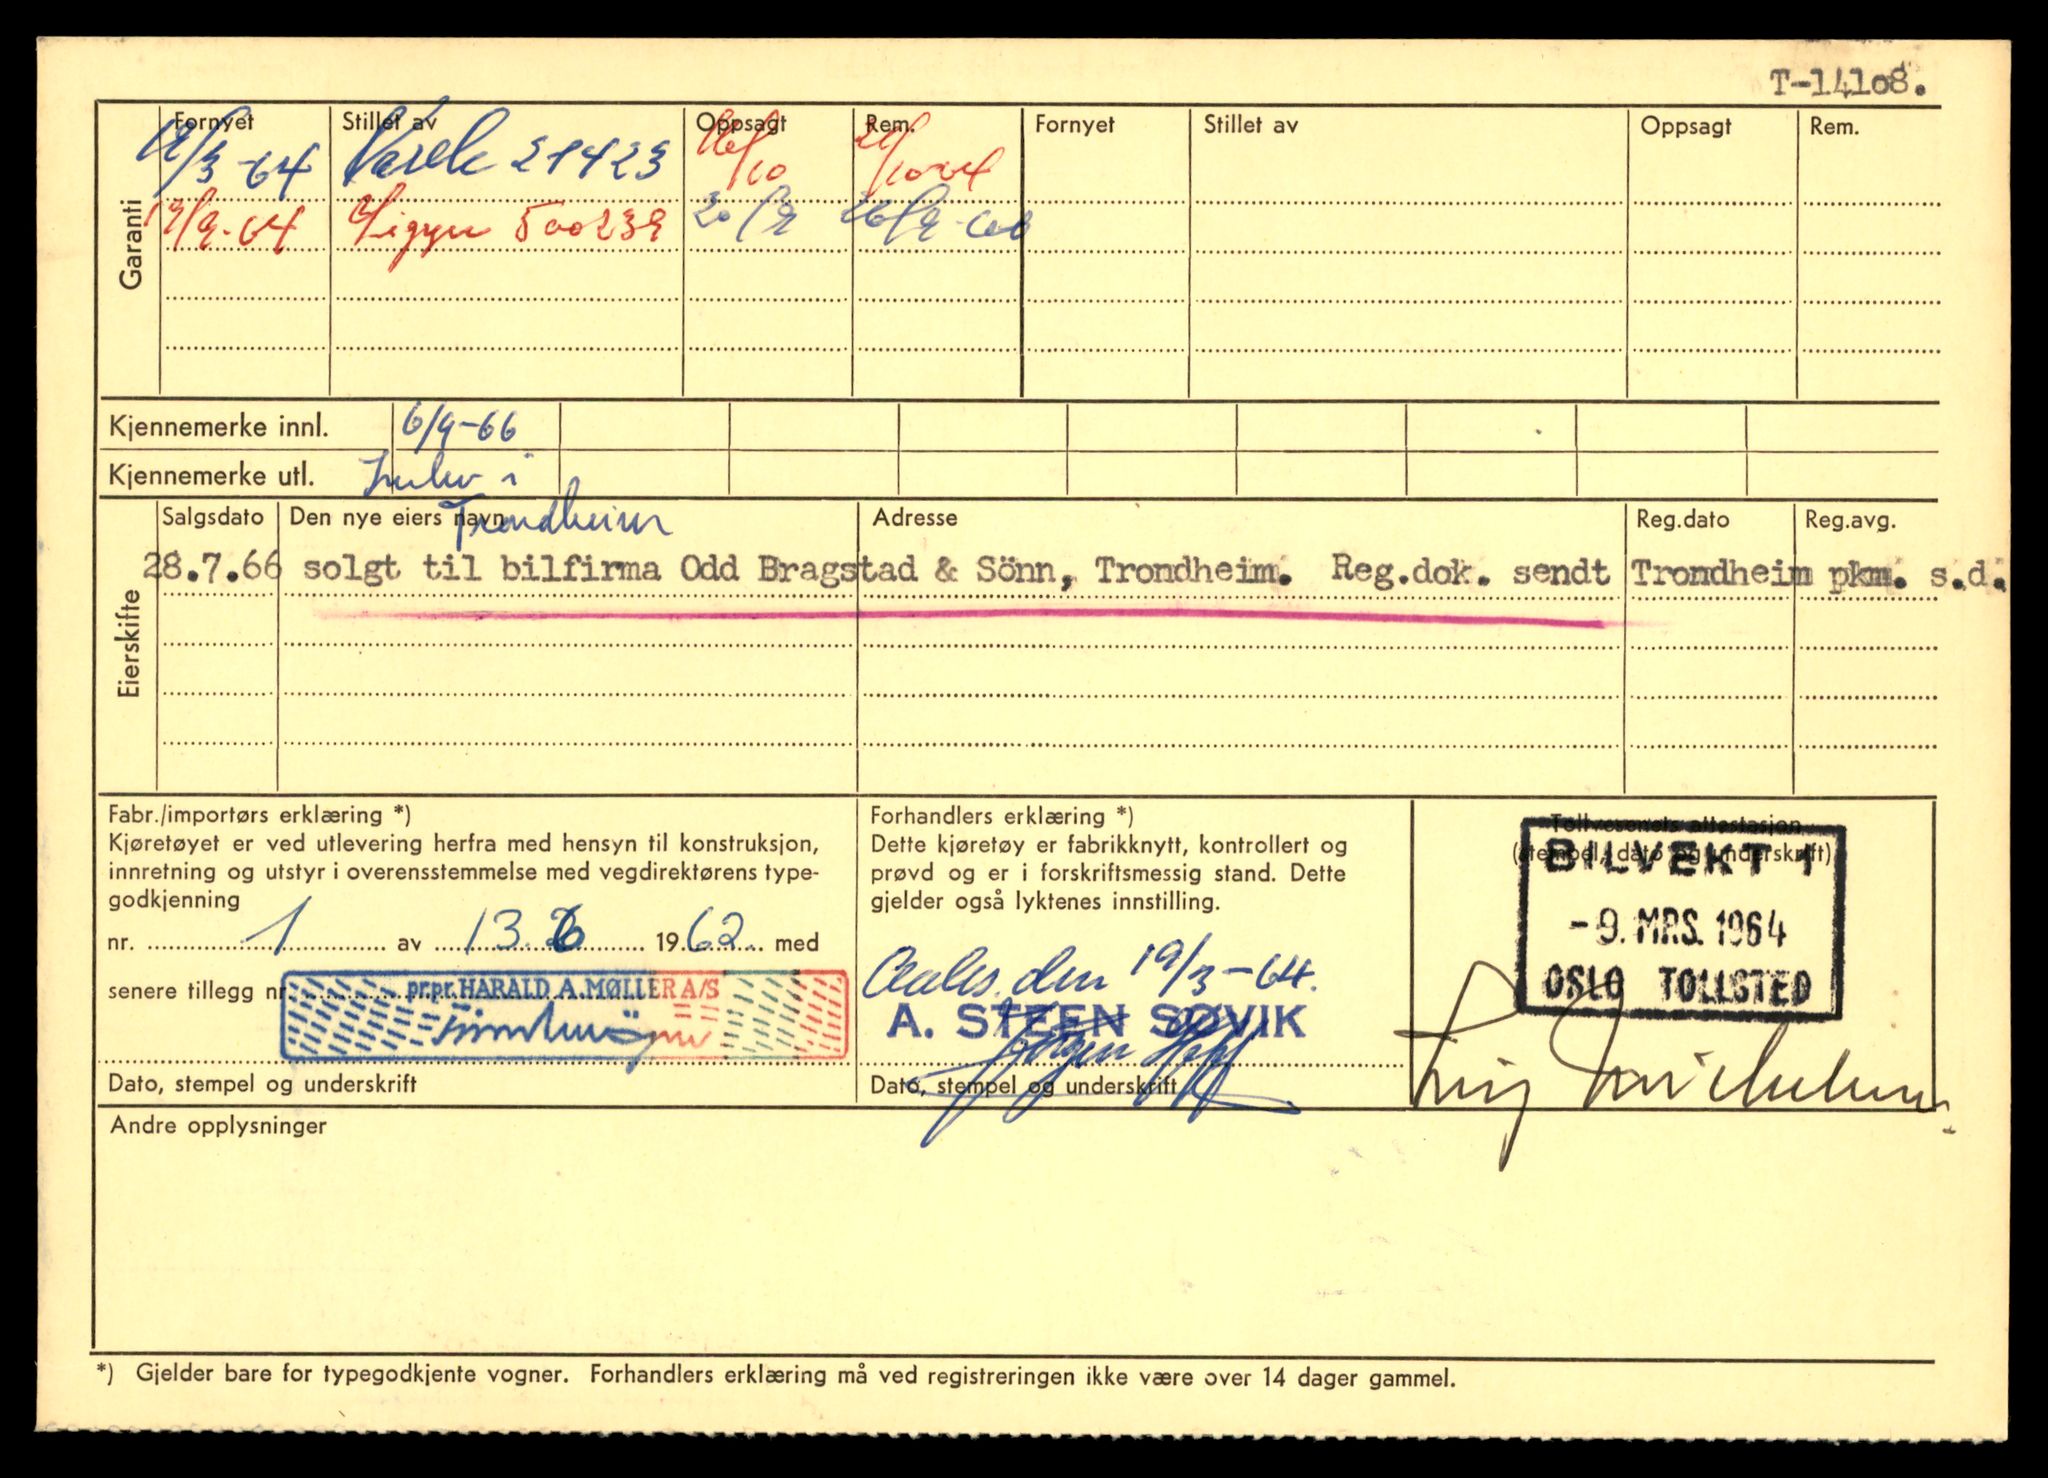 T-14108.
Garanti
Fornyet Stillet av Oppsagt Rem. Fornyet Stillet av Oppsagt Rem.
19/3-64 21423 16/10
-64 Sigyn 500239 20/9
Kjennemerke innl. 6/9-66
Kjennemerke utl. i
Trondheim
Eierskifte
Salgsdato Den nye eiers navn Adresse Reg.dato Reg.avg.
28.7.66 solgt til bilfirma Odd Bragstad & Sönn, Trondheim. Reg.dok. sendt Trondheim pkm. s.d.
Fabr./importørs erklæring *)
Kjøretøyet er ved utlevering herfra med hensyn til konstruksjon,
innretning og utstyr i overensstemmelse med vegdirektørens type-
godkjenning
nr. 1 av 13. 1962 med
senere tillegg nr.
pr.pr. HARALD A. MØLLER A/S
Dato, stempel og underskrift
Forhandlers erklæring *)
Dette kjøretøy er fabrikknytt, kontrollert og
prøvd og er i forskriftsmessig stand. Dette
gjelder også lyktenes innstilling.
den 19/3-64.
A. STEEN SØVIK
Dato, stempel og underskrift
Tollvesenets attestasjon
(stempel, dato og underskrift)
BILVEKT 1
-9. MRS. 1964
OSLO TOLLSTED
Andre opplysninger
*) Gjelder bare for typegodkjente vogner. Forhandlers erklæring må ved registreringen ikke være over 14 dager gammel.